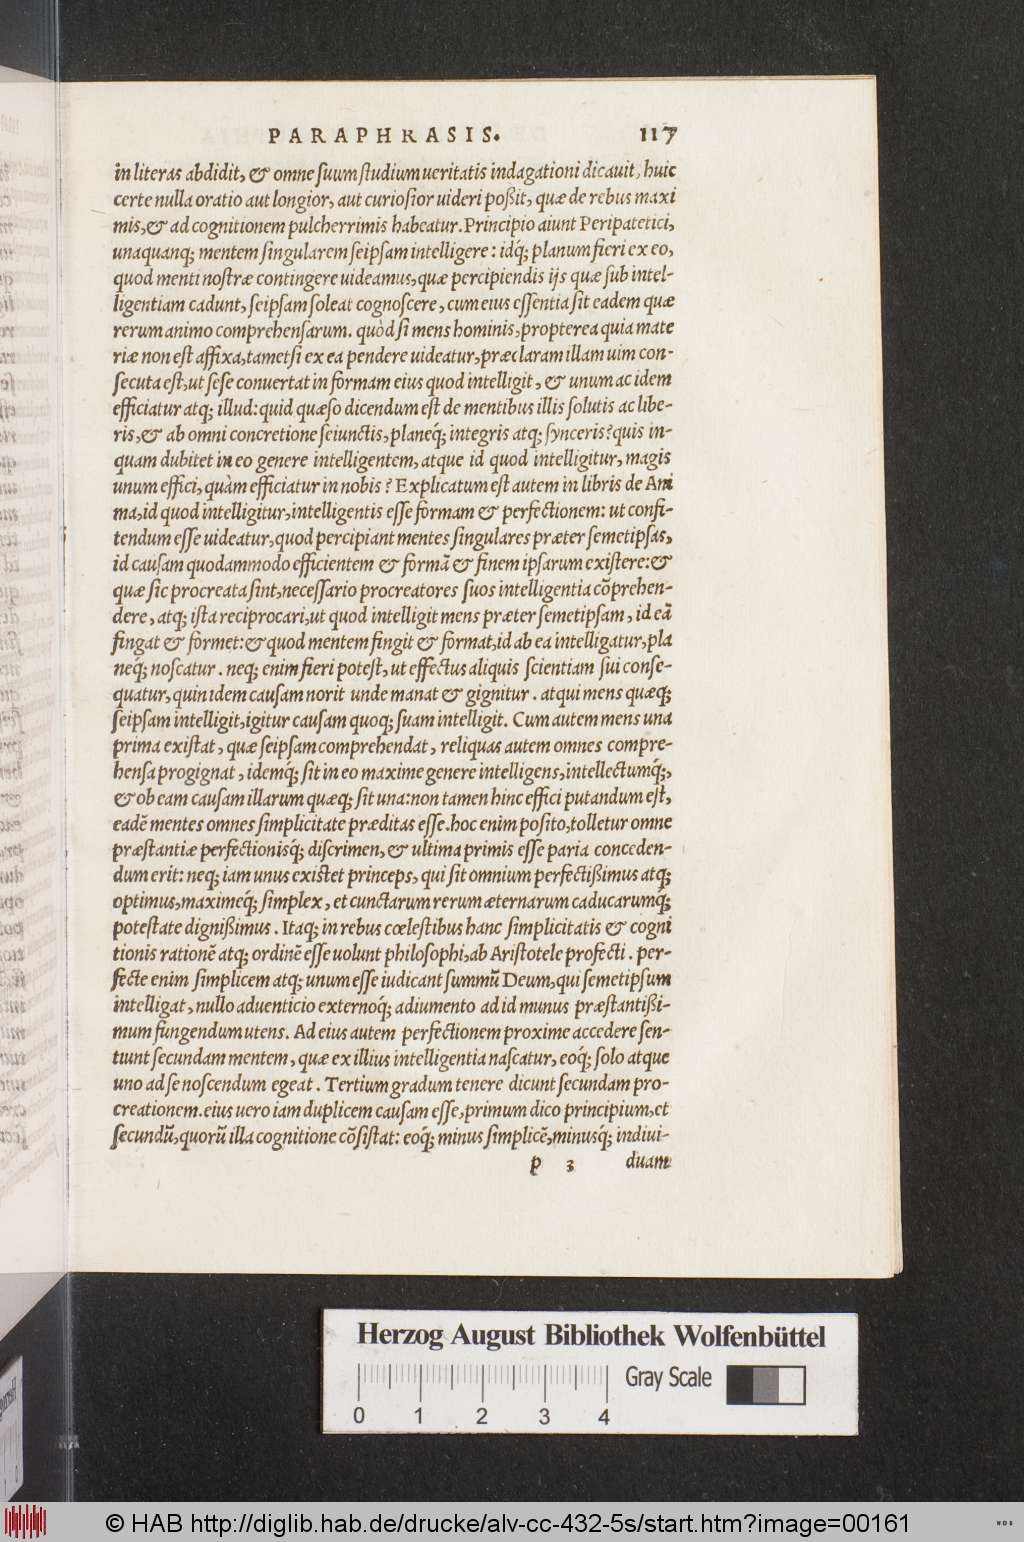 PARAPHRASIS. 117
in literas abdidit, & omne suum studium ueritatis indagationi dicauit, huic
certe nulla oratio aut longior, aut curiosior uideri poßit, quæ de rebus maxi
mis, & ad cognitionem pulcherrimis habeatur. Principio aiunt Peripatetici,
unaquanq; mentem singularem seipsam intelligere: idq́; planum fieri ex eo,
quod menti nostræ contingere uideamus, quæ percipiendis ijs quæ sub intel-
ligentiam cadunt, seipsam soleat cognoscere, cum eius essentia sit eadem quæ
rerum animo comprehensarum. quòd si mens hominis, propterea quia mate
riæ non est affixa, tametsi ex ea pendere uideatur, præclaram illam uim con-
secuta est, ut sese conuertat in formam eius quod intelligit, & unum ac idem
efficiatur atq; illud: quid quæso dicendum est de mentibus illis solutis ac libe-
ris, & ab omni concretione seiunctis, planeq́; integris atq; synceris? quis in-
quam dubitet in eo genere intelligentem, atque id quod intelligitur, magis
unum effici, quàm efficiatur in nobis? Explicatum est autem in libris de Ani
ma, id quod intelligitur, intelligentis esse formam & perfectionem: ut confi-
tendum esse uideatur, quod percipiant mentes singulares præter semetipsas,
id causam quodammodo efficientem & formã & finem ipsarum existere: &
quæ sic procreata sint, necessario procreatores suos intelligentia cõprehen-
dere, atq; ista reciprocari, ut quod intelligit mens præter semetipsam, id eã
fingat & formet: & quod mentem fingit & format, id ab ea intelligatur, pla
neq́; noscatur. neq; enim fieri potest, ut effectus aliquis scientiam sui conse-
quatur, quin idem causam norit unde manat & gignitur. atqui mens quæq;
seipsam intelligit, igitur causam quoq; suam intelligit. Cum autem mens una
prima existat, quæ seipsam comprehendat, reliquas autem omnes compre-
hensa progignat, idemq́; sit in eo maxime genere intelligens, intellectumq́;,
& ob eam causam illarum quæq; sit una: non tamen hinc effici putandum est,
eadẽ mentes omnes simplicitate præditas esse. hoc enim posito, tolletur omne
præstantiæ perfectionisq́; discrimen, & ultima primis esse paria conceden-
dum erit: neq; iam unus existet princeps, qui sit omnium perfectißimus atq;
optimus, maximeq́; simplex, et cunctarum rerum æternarum caducarumq́;
potestate dignißimus. Itaq; in rebus cœlestibus hanc simplicitatis & cogni
tionis rationẽ atq; ordinẽ esse uolunt philosophi, ab Aristotele profecti. per-
fecte enim simplicem atq; unum esse iudicant summũ Deum, qui semetipsum
intelligat, nullo aduenticio externoq́; adiumento ad id munus præstantißi-
mum fungendum utens. Ad eius autem perfectionem proxime accedere sen-
tiunt secundam mentem, quæ ex illius intelligentia nascatur, eoq́; solo atque
uno ad se noscendum egeat. Tertium gradum tenere dicunt secundam pro-
creationem. eius uero iam duplicem causam esse, primum dico principium, et
secundũ, quorũ illa cognitione cõsistat: eoq́; minus simplicẽ, minusq́; indiui-
p 3 duam
Herzog August Bibliothek Wolfenbüttel
Gray Scale
0 1 2 3 4
© HAB http://diglib.hab.de/drucke/alv-cc-432-5s/start.htm?image=00161